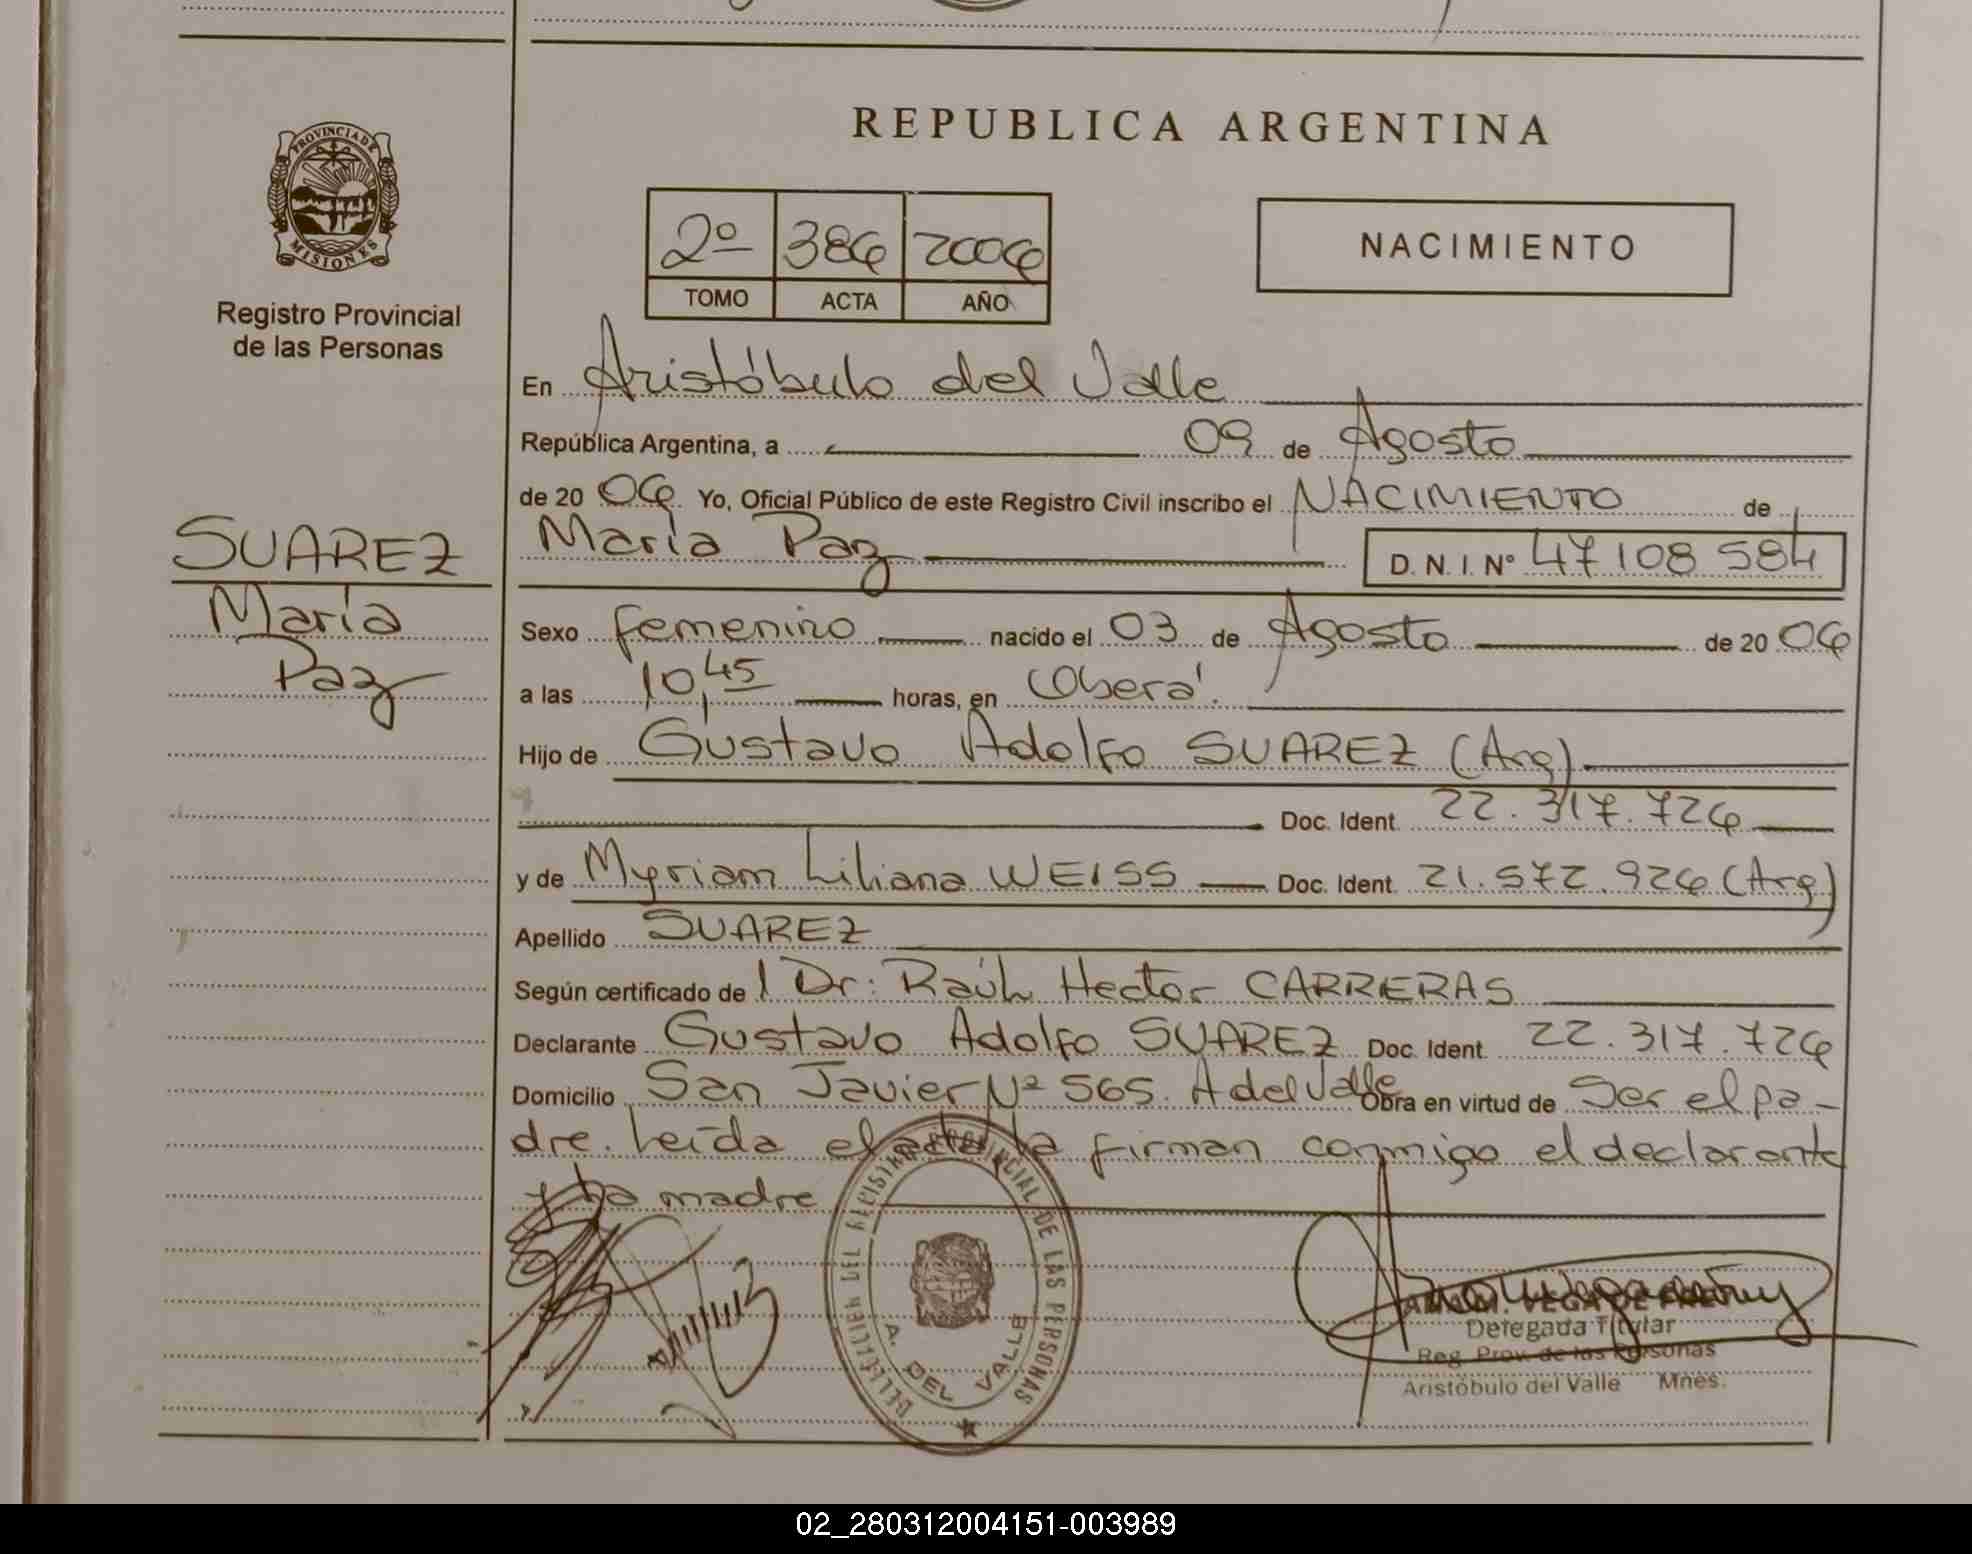 REPUBLICA ARGENTINA
PROVINCIA DE
MISIONES
Registro Provincial
de las Personas
2º 386 2006
TOMO ACTA AÑO
NACIMIENTO
SUAREZ
María
Paz
En Aristóbulo del Valle
República Argentina, a 09 de Agosto
de 20 06 Yo, Oficial Público de este Registro Civil inscribo el NACIMIENTO de
María Paz D. N. I. Nº 47108584
Sexo femenino nacido el 03 de Agosto de 20 06
a las 10,45 horas, en Oberá.
Hijo de Gustavo Adolfo SUAREZ (Arg)
Doc. Ident. 22.317.726
y de Myriam Liliana WEISS Doc. Ident. 21.572.926 (Arg)
Apellido SUAREZ
Según certificado de l Dr: Raúl Hector CARRERAS
Declarante Gustavo Adolfo SUAREZ Doc. Ident. 22.317.726
Domicilio San Javier Nº 565. A del Valle Obra en virtud de Ser el pa-
dre. Leída el acta la firman conmigo el declarante
y la madre
REGISTRO PROVINCIAL DE LAS PERSONAS
A. DEL VALLE
Delegada Titular
Reg. Prov. de las Personas
Aristóbulo del Valle Mnes.
02_280312004151-003989